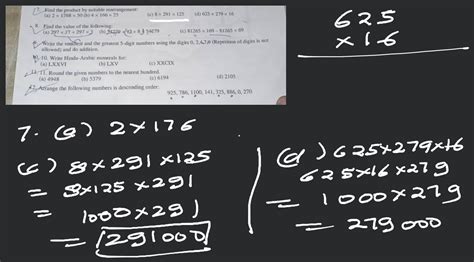 7. Find the product by suitable rearrangement:
(a) 2 × 1768 × 50 (b) 4 × 166 × 25 (c) 8 × 291 × 125 (d) 625 × 279 × 16
8. Find the value of the following:
(a) 297 × 17 + 297 × 3 (c) 81265 × 169 – 81265 × 69
9. Write the smallest and the greatest 5 digit numbers using the digits 0, 2, 4, 7, 8 (Repetition of digits is not
allowed) and do addition.
10. Write Hindu-Arabic numerals for:
(a) LXXVI (b) LXV (c) XXCIX
11. Round the given numbers to the nearest hundred.
(a) 4948 (b) 5379 (c) 6194 (d) 2105
Arrange the following numbers in descending order:
925, 786, 1100, 141, 325, 886, 0, 270
625
×16
7. (a) 2×176
(c) 8×291×125
= 8×125×291
= 1000×291
= 291000
(d) 625×279×16
625×16×279
= 1000×279
= 279000